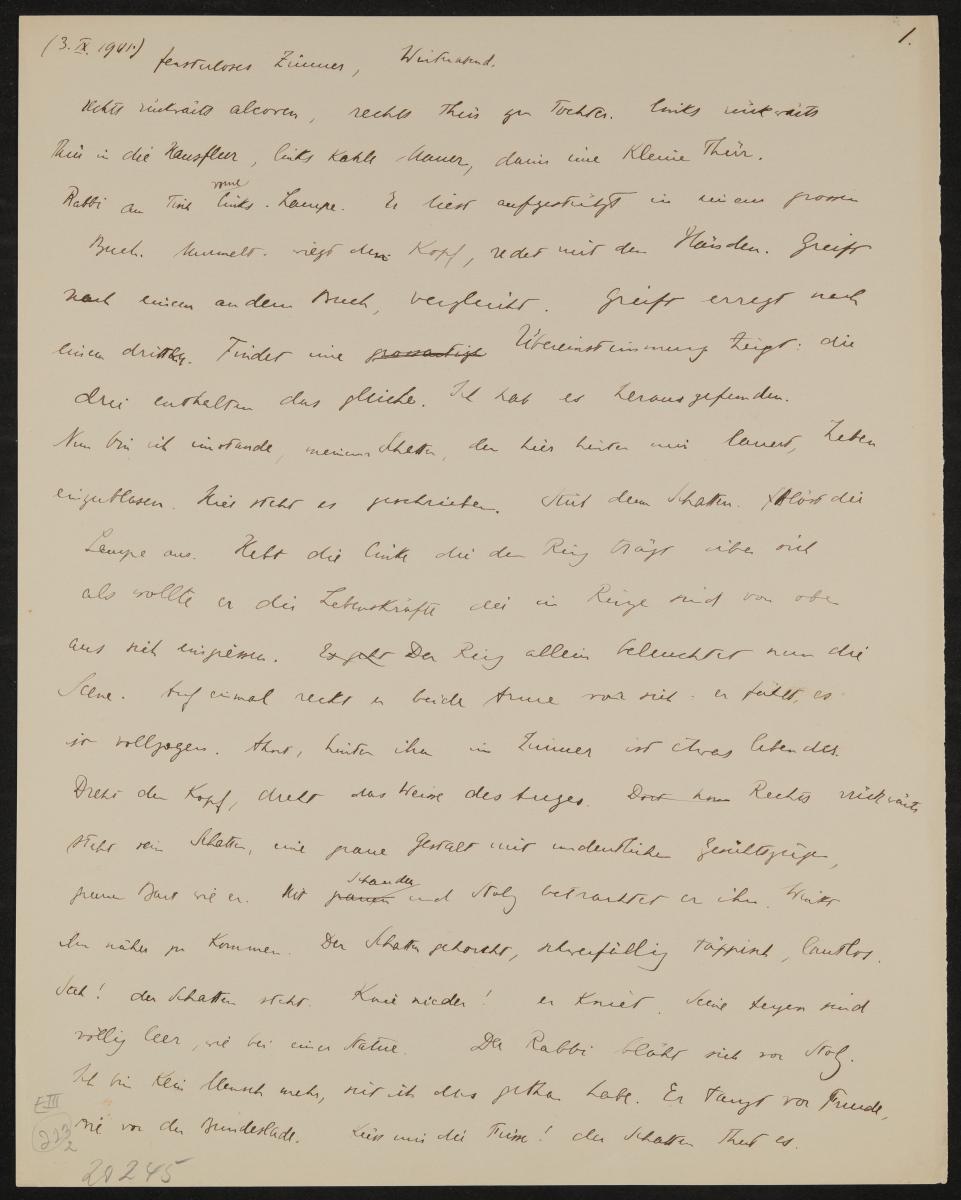 1.
(3. IX. 1911.) fensterloses Zimmer, Winterabend.
rechts rückwärts alcoven, rechts Thür zur Tochter. links rückwärts
Thür in die Hausflur, links Kahle Mauer, darin eine Kleine Thür.
Rabbi am Tisch vorne links. Lampe. Er liest aufgestützt in einem grossen
Buch. Murmelt. wiegt den Kopf, redet mit den Händen. Greift
nach einem andern Buch, vergleicht. Greift erregt nach
einem dritten. Findet eine grossartige Übereinstimmung zeigt: die
drei enthalten das gleiche. Ich hab es herausgefunden.
Nun bin ich imstande, meinem Schatten, der hier hinter mir lauert, Leben
einzublasen. Hier steht es geschrieben. dem Schatten. löscht die
Lampe aus. Hebt die linke die den Ring trägt über sich
als wollte er die Lebenskräfte die im Ringe sind von oben
aus sich eingiessen. Er geht Der Ring allein beleuchtet nun die
Scene. Auf einmal reckt er beide Arme vor sich: er fühlt, es
ist vollzogen. Ahnt, hinter ihm im Zimmer ist etwas lebendes.
Dreht den Kopf, dreht das Weisse des Auges. Dort Rechts rückwärts
steht sein Schatten, eine graue Gestalt mit undeutlichen Gesichtszügen,
grauen Bart wie er. Mit grauen Schauder und Stolz betrachtet er ihn. Winkt
ihm näher zu Kommen. Der Schatten gehorcht, schwerfällig täppisch, lautlos.
Steh! der Schatten steht. Knie nieder! er Kniet. Seine Augen sind
völlig leer, wie bei einer Statue. Der Rabbi bläht sich vor Stolz.
Ich bin Kein Mensch mehr, seit ich das gethan habe. Er tanzt vor Freude,
wie vor der Bundeslade. Küss mir die Füsse! der Schatten thut es.
E III
223
2
20245